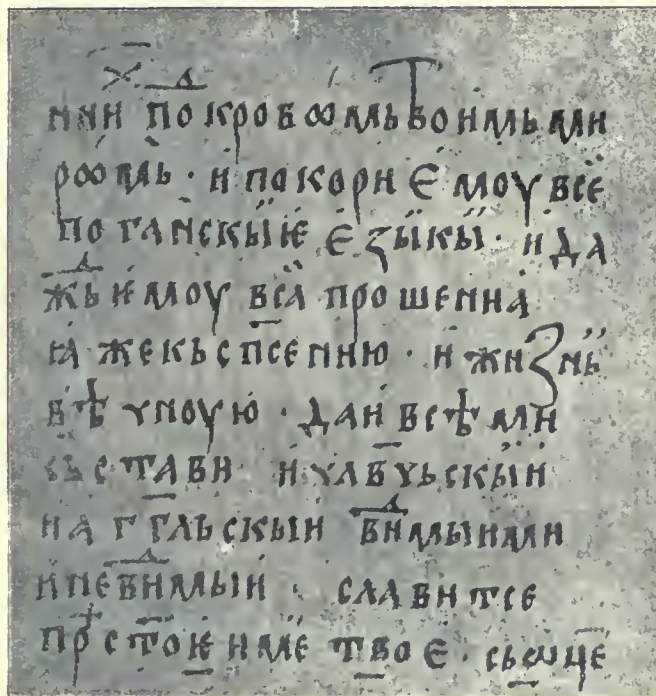 нин покровѡмь твоимь ми
рѡмь · и покори ѥмоу всѥ
поганскыѥ єзыкы · и да
жь ѥмоу вса прошениꙗ
ꙗже кь спсению · и жизнь
вѣчноую · даи всѣми
сьстави и чл҃вчьскыи
и аг҃гльскыи в҃идмыими
и нев҃идмыи · славитсе
прⷭ҇тоѥ име тв҃оє · сь ѡц҃е